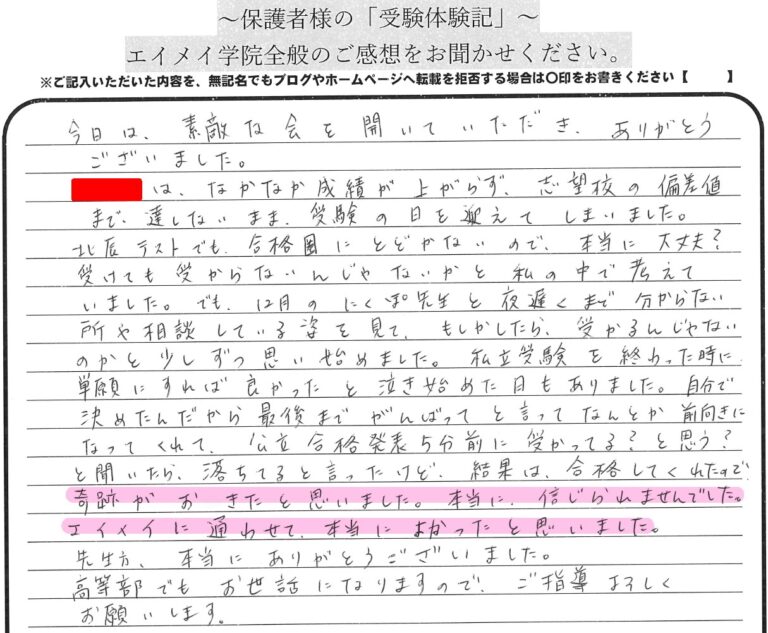 ～保護者様の「受験体験記」～
エイメイ学院全般のご感想をお聞かせください。
※ご記入いただいた内容を、無記名でもブログやホームページへ転載を拒否する場合は〇印をお書きください【　　】
今日は、素敵な会を開いていただき、ありがとう
ございました。
は、なかなか成績が上がらず、志望校の偏差値
まで、達しないまま、受験の日を迎えてしまいました。
北辰テストでも、合格圏にとどかないので、本当に大丈夫？
受けても受からないんじゃないかと私の中で考えて
いました。でも、12月のにくぽ先生と夜遅くまで分からない
所や相談している姿を見て、もしかしたら、受かるんじゃない
のかと少しずつ思い始めました。私立受験を終わった時に
単願にすれば良かったと泣き始めた日もありました。自分で
決めたんだから最後までがんばってと言ってなんとか前向きに
なってくれて、公立合格発表5分前に受かってる？と思う？
と聞いたら、落ちてると言ったけど、結果は、合格してくれたので
奇跡がおきたと思いました。本当に、信じられませんでした。
エイメイに通わせて、本当によかったと思いました。
先生方、本当にありがとうございました。
高等部でもお世話になりますので、ご指導よろしく
お願いします。